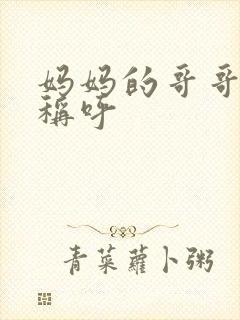 妈妈的哥哥
稱呼
青菜蘿卜粥